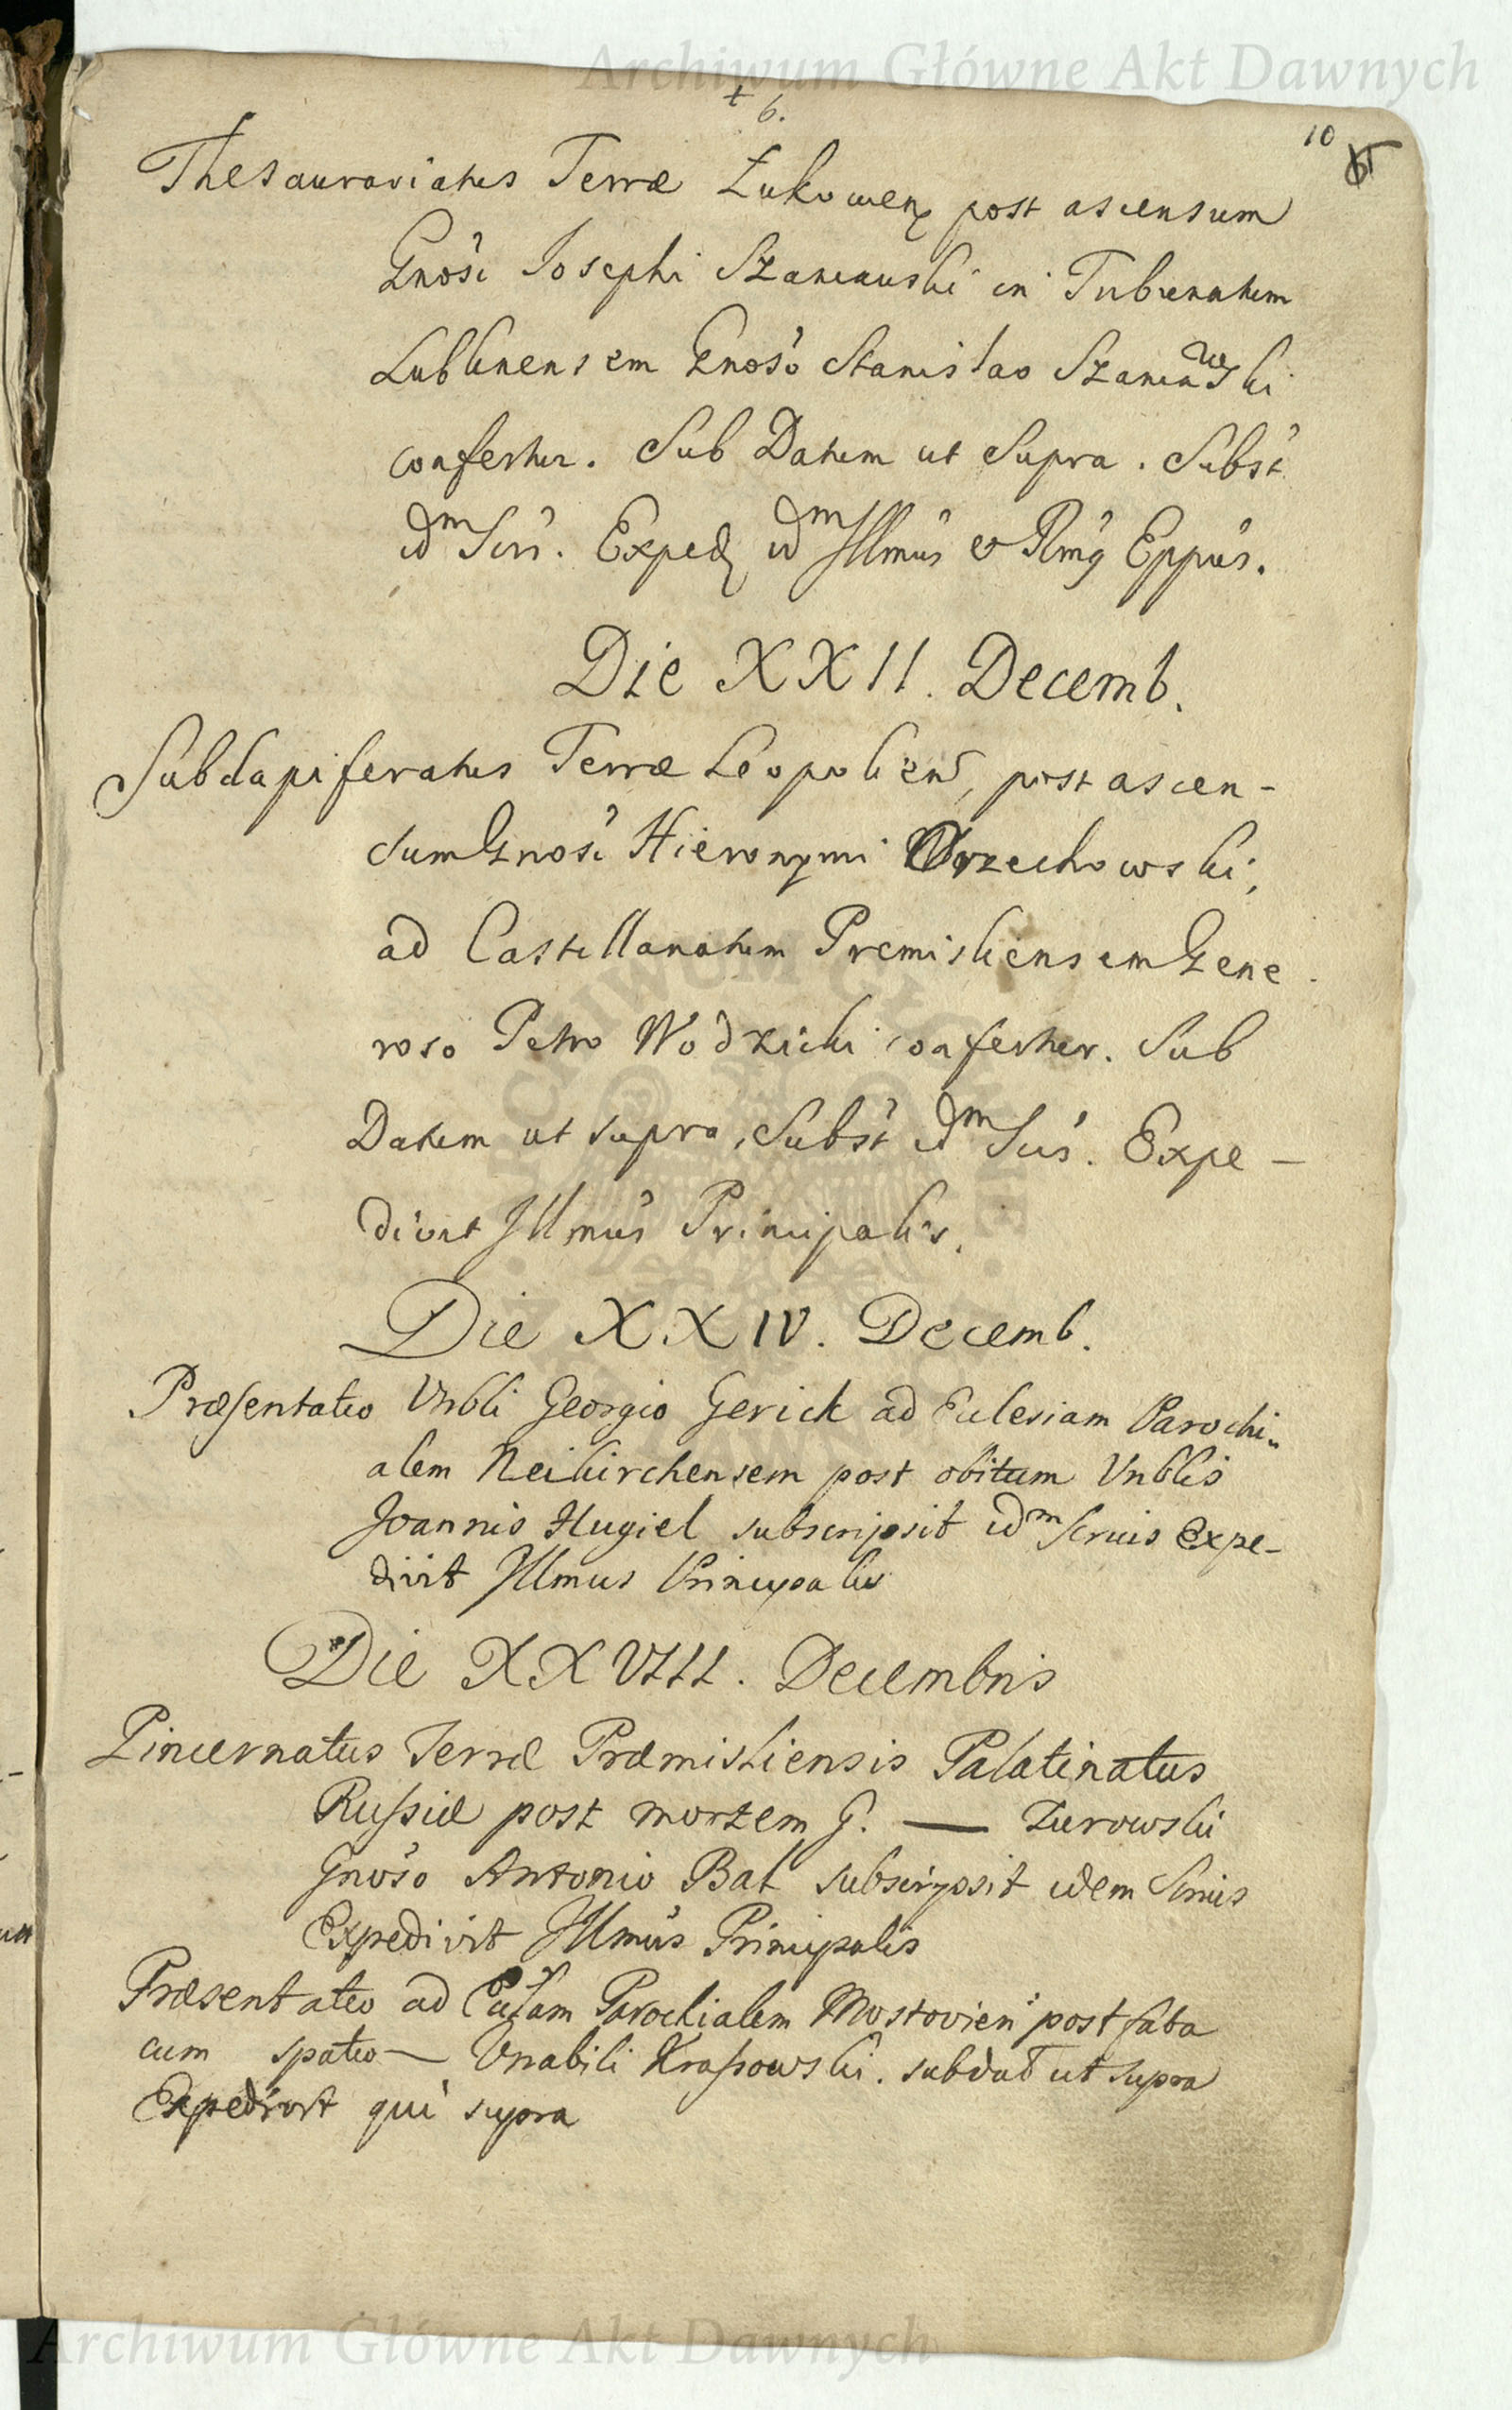 Archiwum Główne Akt Dawnych
6.
10
Thesaurariatus Terræ Łukowen post ascensum
Gnosi Josephi Szaniawski in Tribunatum
Lublinensem Gnoso Stanislao Szaniawski
confertur. Sub Datum ut supra. Subst
idm Sers. Exped idm Illmus et Rmg Eppus.
Die XXII. Decemb.
Subdapiferatus Terræ Leopolien, post ascen-
sum Gnosi Hieronymi Orzechowski,
ad Castellanatum Premisliensem Gene
roso Petro Wodzicki confertur. Sub
Datum ut supra, Subst idm Sers. Expe-
divit Illmus Principalis.
Die XXIV. Decemb.
Præsentatio Vnbli Georgio Gerick ad Eclesiam Parochi-
alem Neikirchensem post obitum Vnblis
Joannis Hugiel subscripsit idm Srmus Expe-
divit Illmus Principalis
Die XXVIII. Decembris
Pincernatus Terræ Præmisliensis Palatinatus
Russiæ post mortem G. — Zurowski
Gnoso Antonio Bal subscripsit idem Srmus
Expedivit Illmus Principalis
Præsentatio ad Parochialem Mostovien post fata
cum spatio — Vnabili Krassowski. subdat ut supra
Expedivit qui supra
Archiwum Główne Akt Dawnych